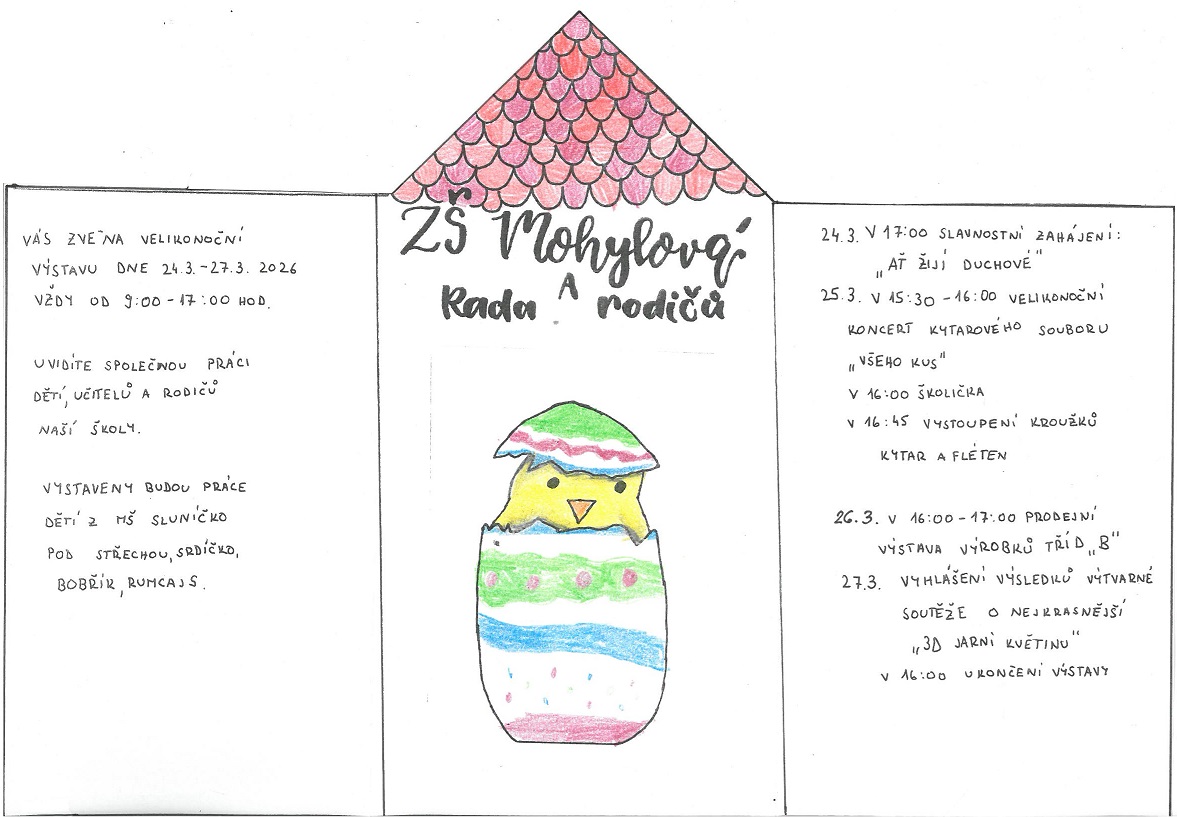 ZŠ Mohylová
A
Rada rodičů
VÁS ZVE NA VELIKONOČNÍ
VÝSTAVU DNE 24.3.-27.3. 2026
VŽDY OD 9:00-17:00 HOD.
UVIDÍTE SPOLEČNOU PRÁCI
DĚTÍ, UČITELŮ A RODIČŮ
NAŠÍ ŠKOLY.
VYSTAVENY BUDOU PRÁCE
DĚTÍ Z MŠ SLUNÍČKO
POD STŘECHOU, SRDÍČKO,
BOBŘÍK, RUMCAJS.
24.3. V 17:00 SLAVNOSTNÍ ZAHÁJENÍ:
„AŤ ŽIJÍ DUCHOVÉ"
25.3. V 15:30 - 16:00 VELIKONOČNÍ
KONCERT KYTAROVÉHO SOUBORU
„VŠEHO KUS"
V 16:00 ŠKOLIČKA
V 16:45 VYSTOUPENÍ KROUŽKŮ
KYTAR A FLÉTEN
26.3. V 16:00-17:00 PRODEJNÍ
VÝSTAVA VÝROBKŮ TŘÍD „B"
27.3. VYHLÁŠENÍ VÝSLEDKŮ VÝTVARNÉ
SOUTĚŽE O NEJKRASNĚJŠÍ
„3D JARNÍ KVĚTINU"
V 16:00 UKONČENÍ VÝSTAVY